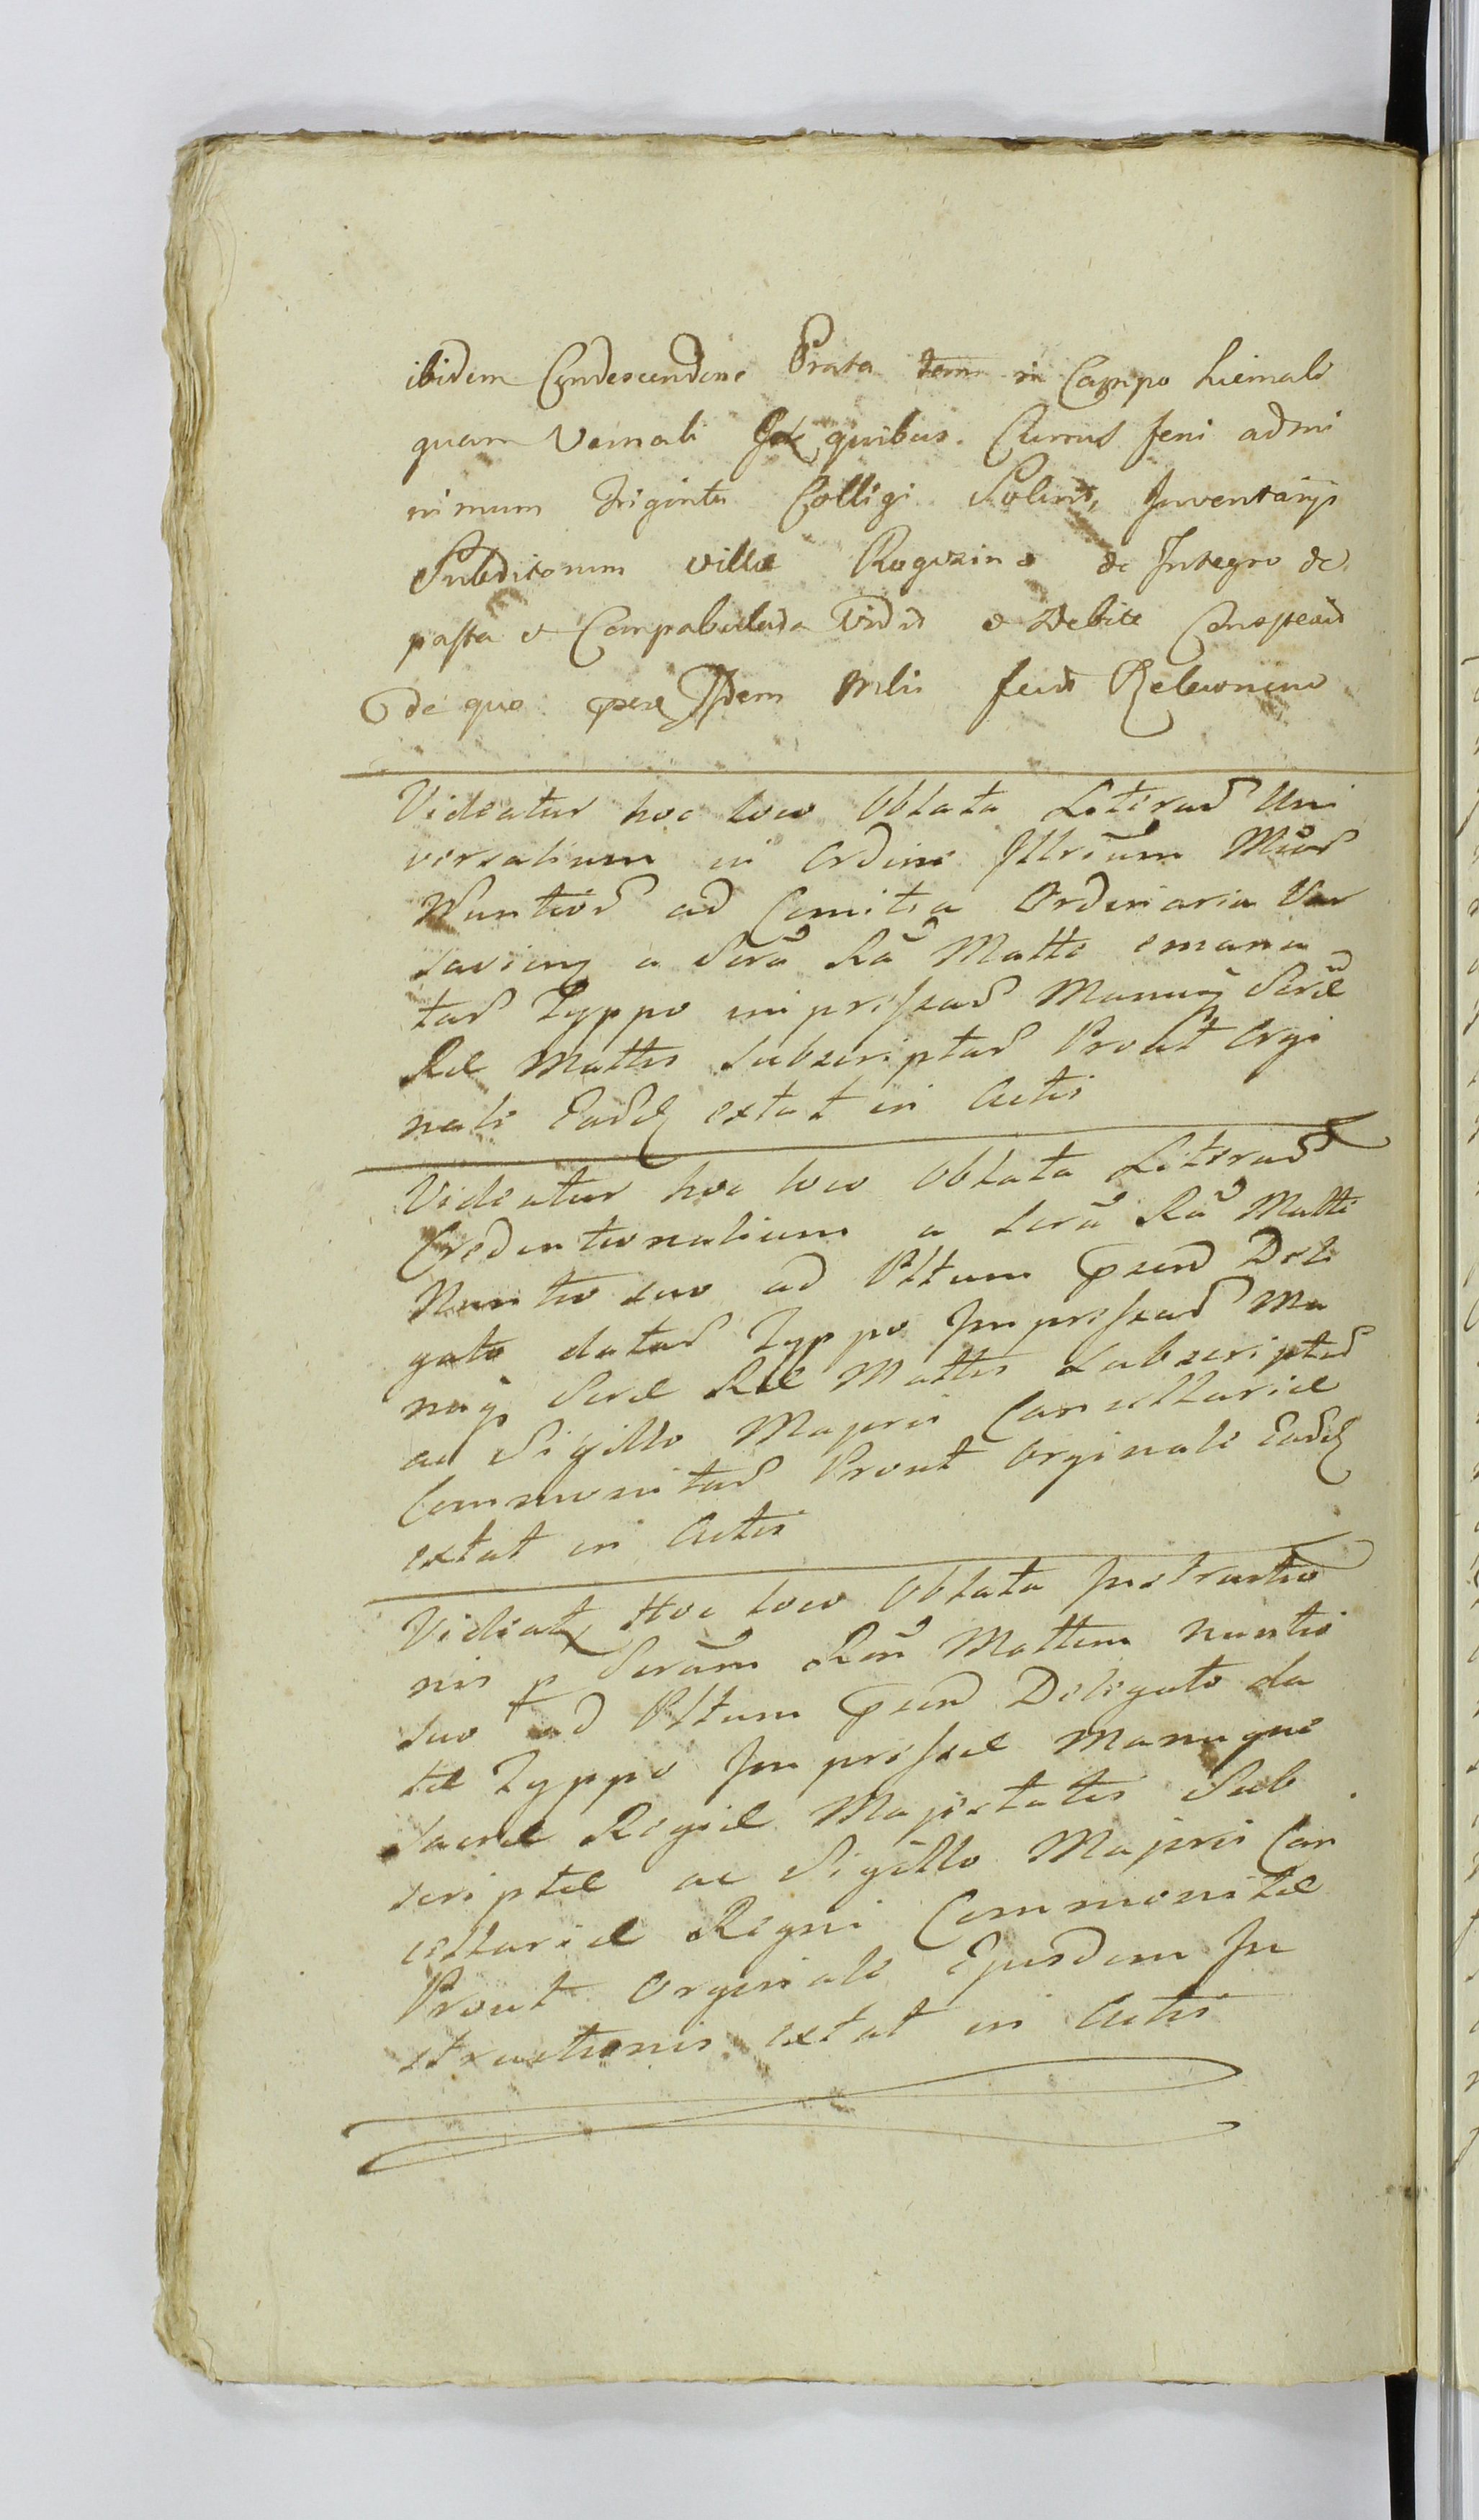 ibidem Condescendens Prata tam in Campo hiemali
quam Vernali Ex quibus Currus feni admi
nimum Triginta Colligi Solent, Inventarijs
Subditorum villæ Roguzin de Integro de
pasta et Compabulata Vidit et Debite Conspexit
de quo Idem Mlis fecit Relationem
Videatur hoc loco Oblata Literar Uni
versalium in Ordine Illrium Mcor
Nuntior ad Comitia Ordinaria Var
saviens a Sera Ra Matte emana
tar Typpo impressar Manuq Seræ
Ræ Mattis Subscriptar Prout Orgi
nale Eard extat in Actis
Videatur hoc loco Oblata Literar
Credentionalium a Sera Ra Matte
Nuntio suo ad Pttum Dele
gato datar Typpo Impressar Ma
nuq Seræ Ræ Mattis Subscriptar
ac Sigillo Majoris Cancellariæ
Communitar Prout Orginale Eard
extat in Actis
Videat Hoc loco Oblata Instructio
nis p Seram Ram Mattem Nuntio
suo ad Pttum Delegato da
tæ Typpo Impressæ Manuque
Sacræ Regiæ Majestatis Sub
scriptæ ac Sigillo Majoris Can
cellariæ Regni Communitæ
Prout Orginale Ejusdem In
structionis extat in Actis